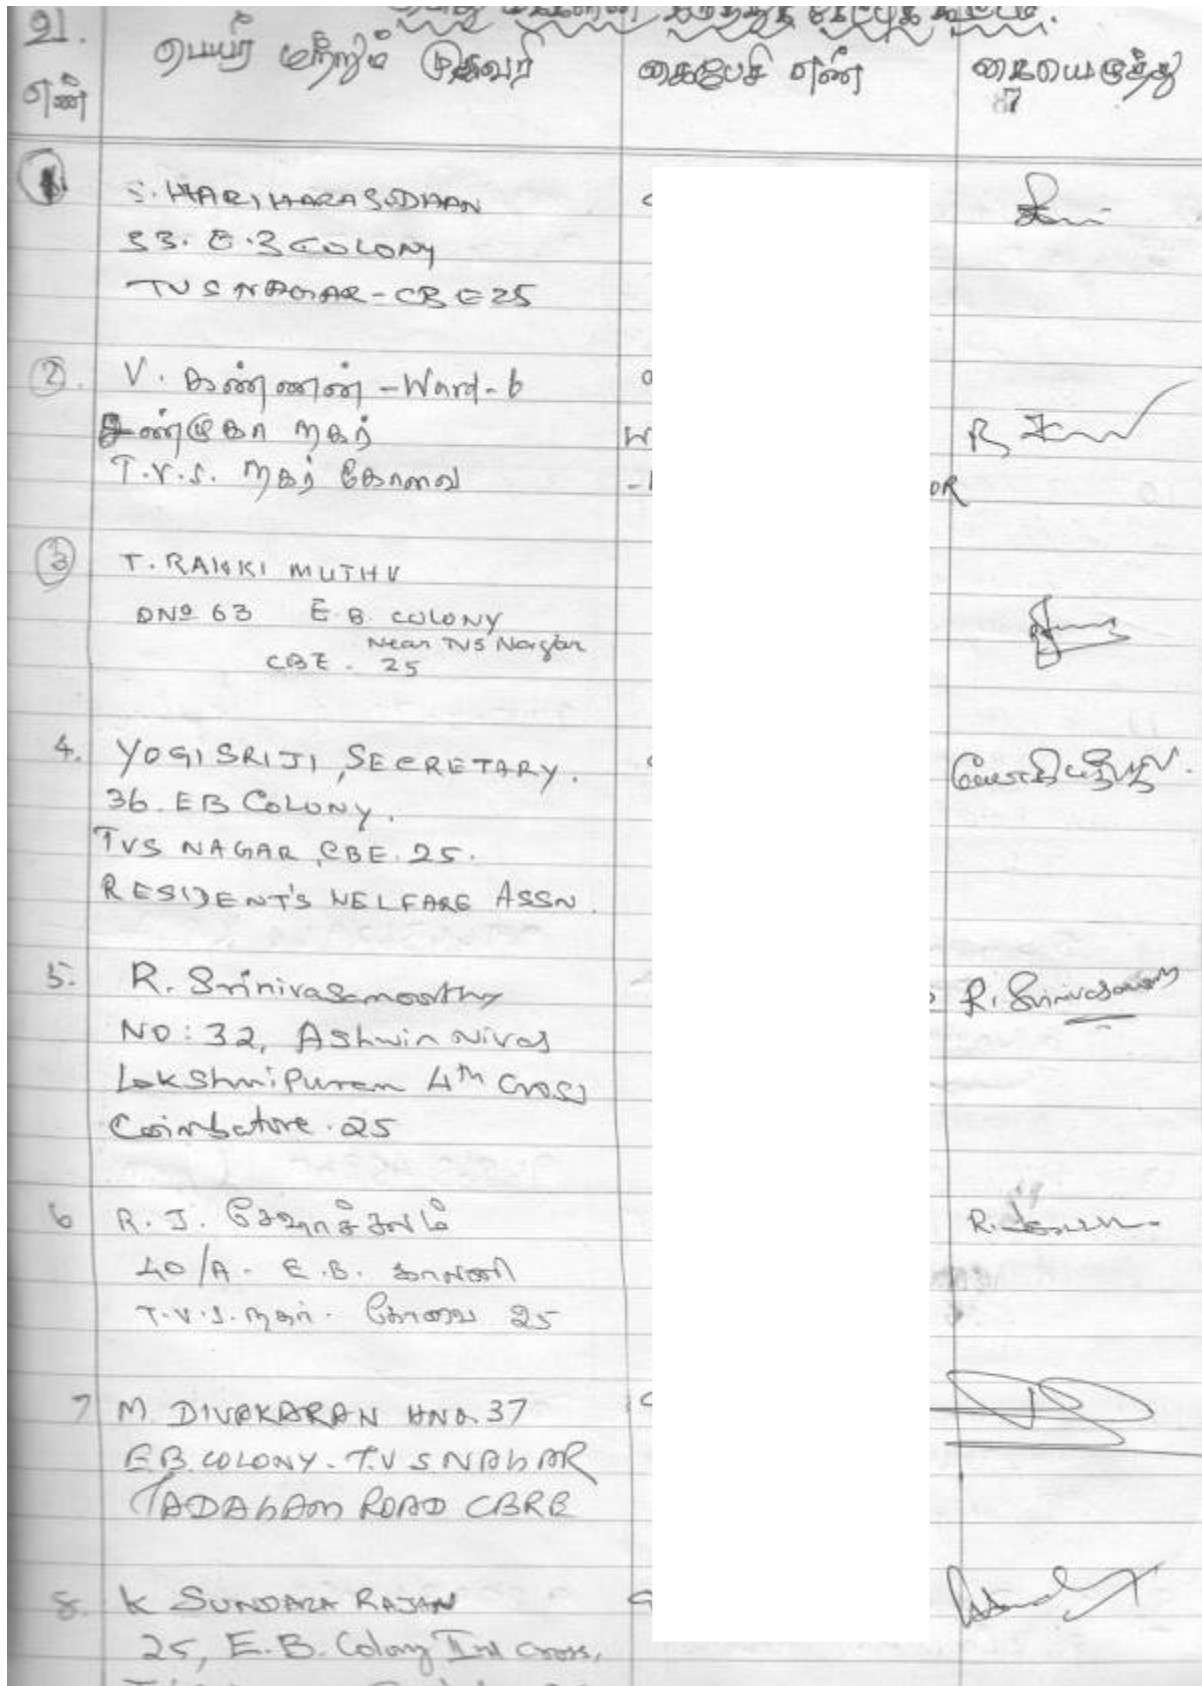 பெயர் மற்றும் முகவரி கைபேசி எண் கையெழுத்து
எண் 7
1 S. HARIHARASUDHAN
33. E.B COLONY
TVS NAGAR - CBE 25
2. V. கண்ணன் - Ward - 6
சண்முகா நகர்
T.V.S. நகர் கோவை
OR
3 T. RAKKI MUTHU
DNo 63 E.B. COLONY
Near TVS Nagar
CBE. 25
4. YOGI SRIJI, SECRETARY.
36. EB COLONY.
TVS NAGAR, CBE. 25.
RESIDENT'S WELFARE ASSN.
5. R. Srinivasamoorthy R. Srinivasamoorthy
NO: 32, Ashwin Nivas
Lakshmipuram 4th Cross
Coimbatore. 25
6 R. J.
40/A. E.B. காலனி
T.V.S. நகர். கோவை 25
7 M DIVAKARAN HNO. 37
E.B. COLONY. T.V.S NAGAR
TADAGAM ROAD CBRE
8. K SUNDARA RAJAN
25, E.B. Colony IInd Cross,